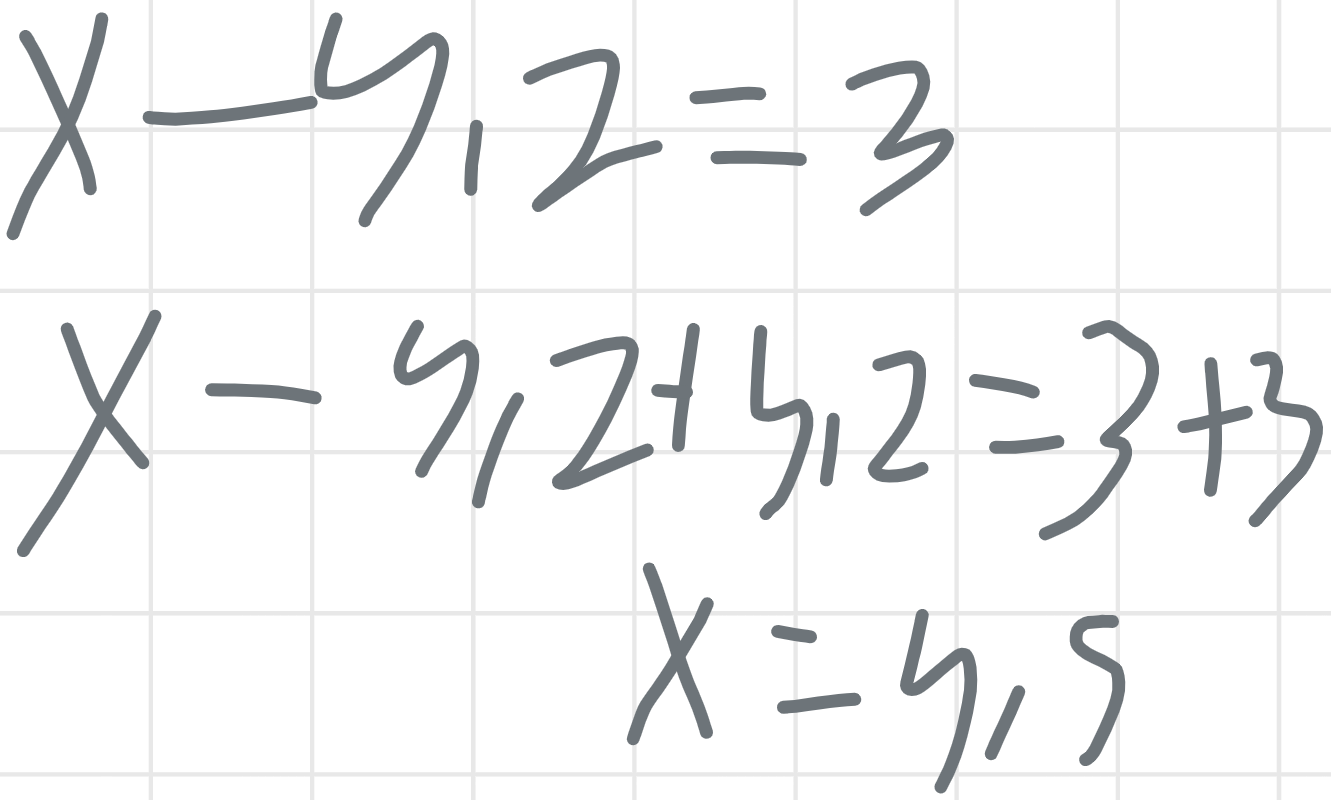 x - 4,2 = 3
x - 4,2 + 4,2 = 3 + 3
x = 4,5